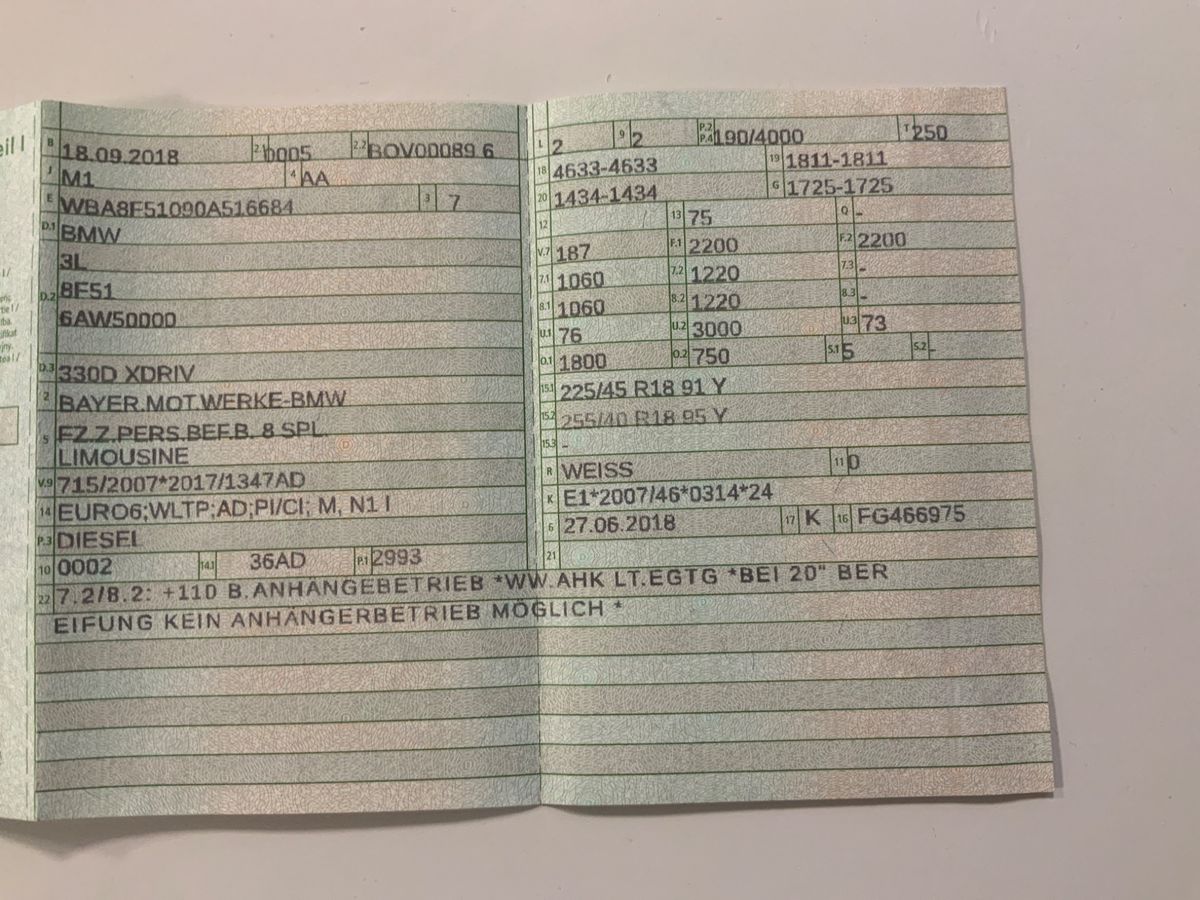 eil I
B 18.09.2018 2.1 0005 2.2 BOV00089 6
J M1 4 AA
E WBA8F51090A516684 3 7
D.1 BMW
3L
D.2 8F51
6AW50000
D.3 330D XDRIV
2 BAYER.MOT.WERKE-BMW
5 FZ.Z.PERS.BEF.B. 8 SPL.
LIMOUSINE
V.9 715/2007*2017/1347AD
14 EURO6;WLTP;AD;PI/CI; M, N1 I
P.3 DIESEL
10 0002 14.1 36AD P.1 2993
L 2 9 2 P.2 P.4 190/4000 T 250
18 4633-4633 19 1811-1811
20 1434-1434 G 1725-1725
12 13 75 Q -
V.7 187 F.1 2200 F.2 2200
7.1 1060 7.2 1220 7.3 -
8.1 1060 8.2 1220 8.3 -
U.1 76 U.2 3000 U.3 73
O.1 1800 O.2 750 S.1 5 S.2 -
15.1 225/45 R18 91 Y
15.2 255/40 R18 95 Y
15.3 -
R WEISS 11 0
K E1*2007/46*0314*24
6 27.06.2018 17 K 16 FG466975
21
22 7.2/8.2: +110 B.ANHÄNGEBETRIEB *WW.AHK LT.EGTG *BEI 20" BER
EIFUNG KEIN ANHÄNGERBETRIEB MÖGLICH *